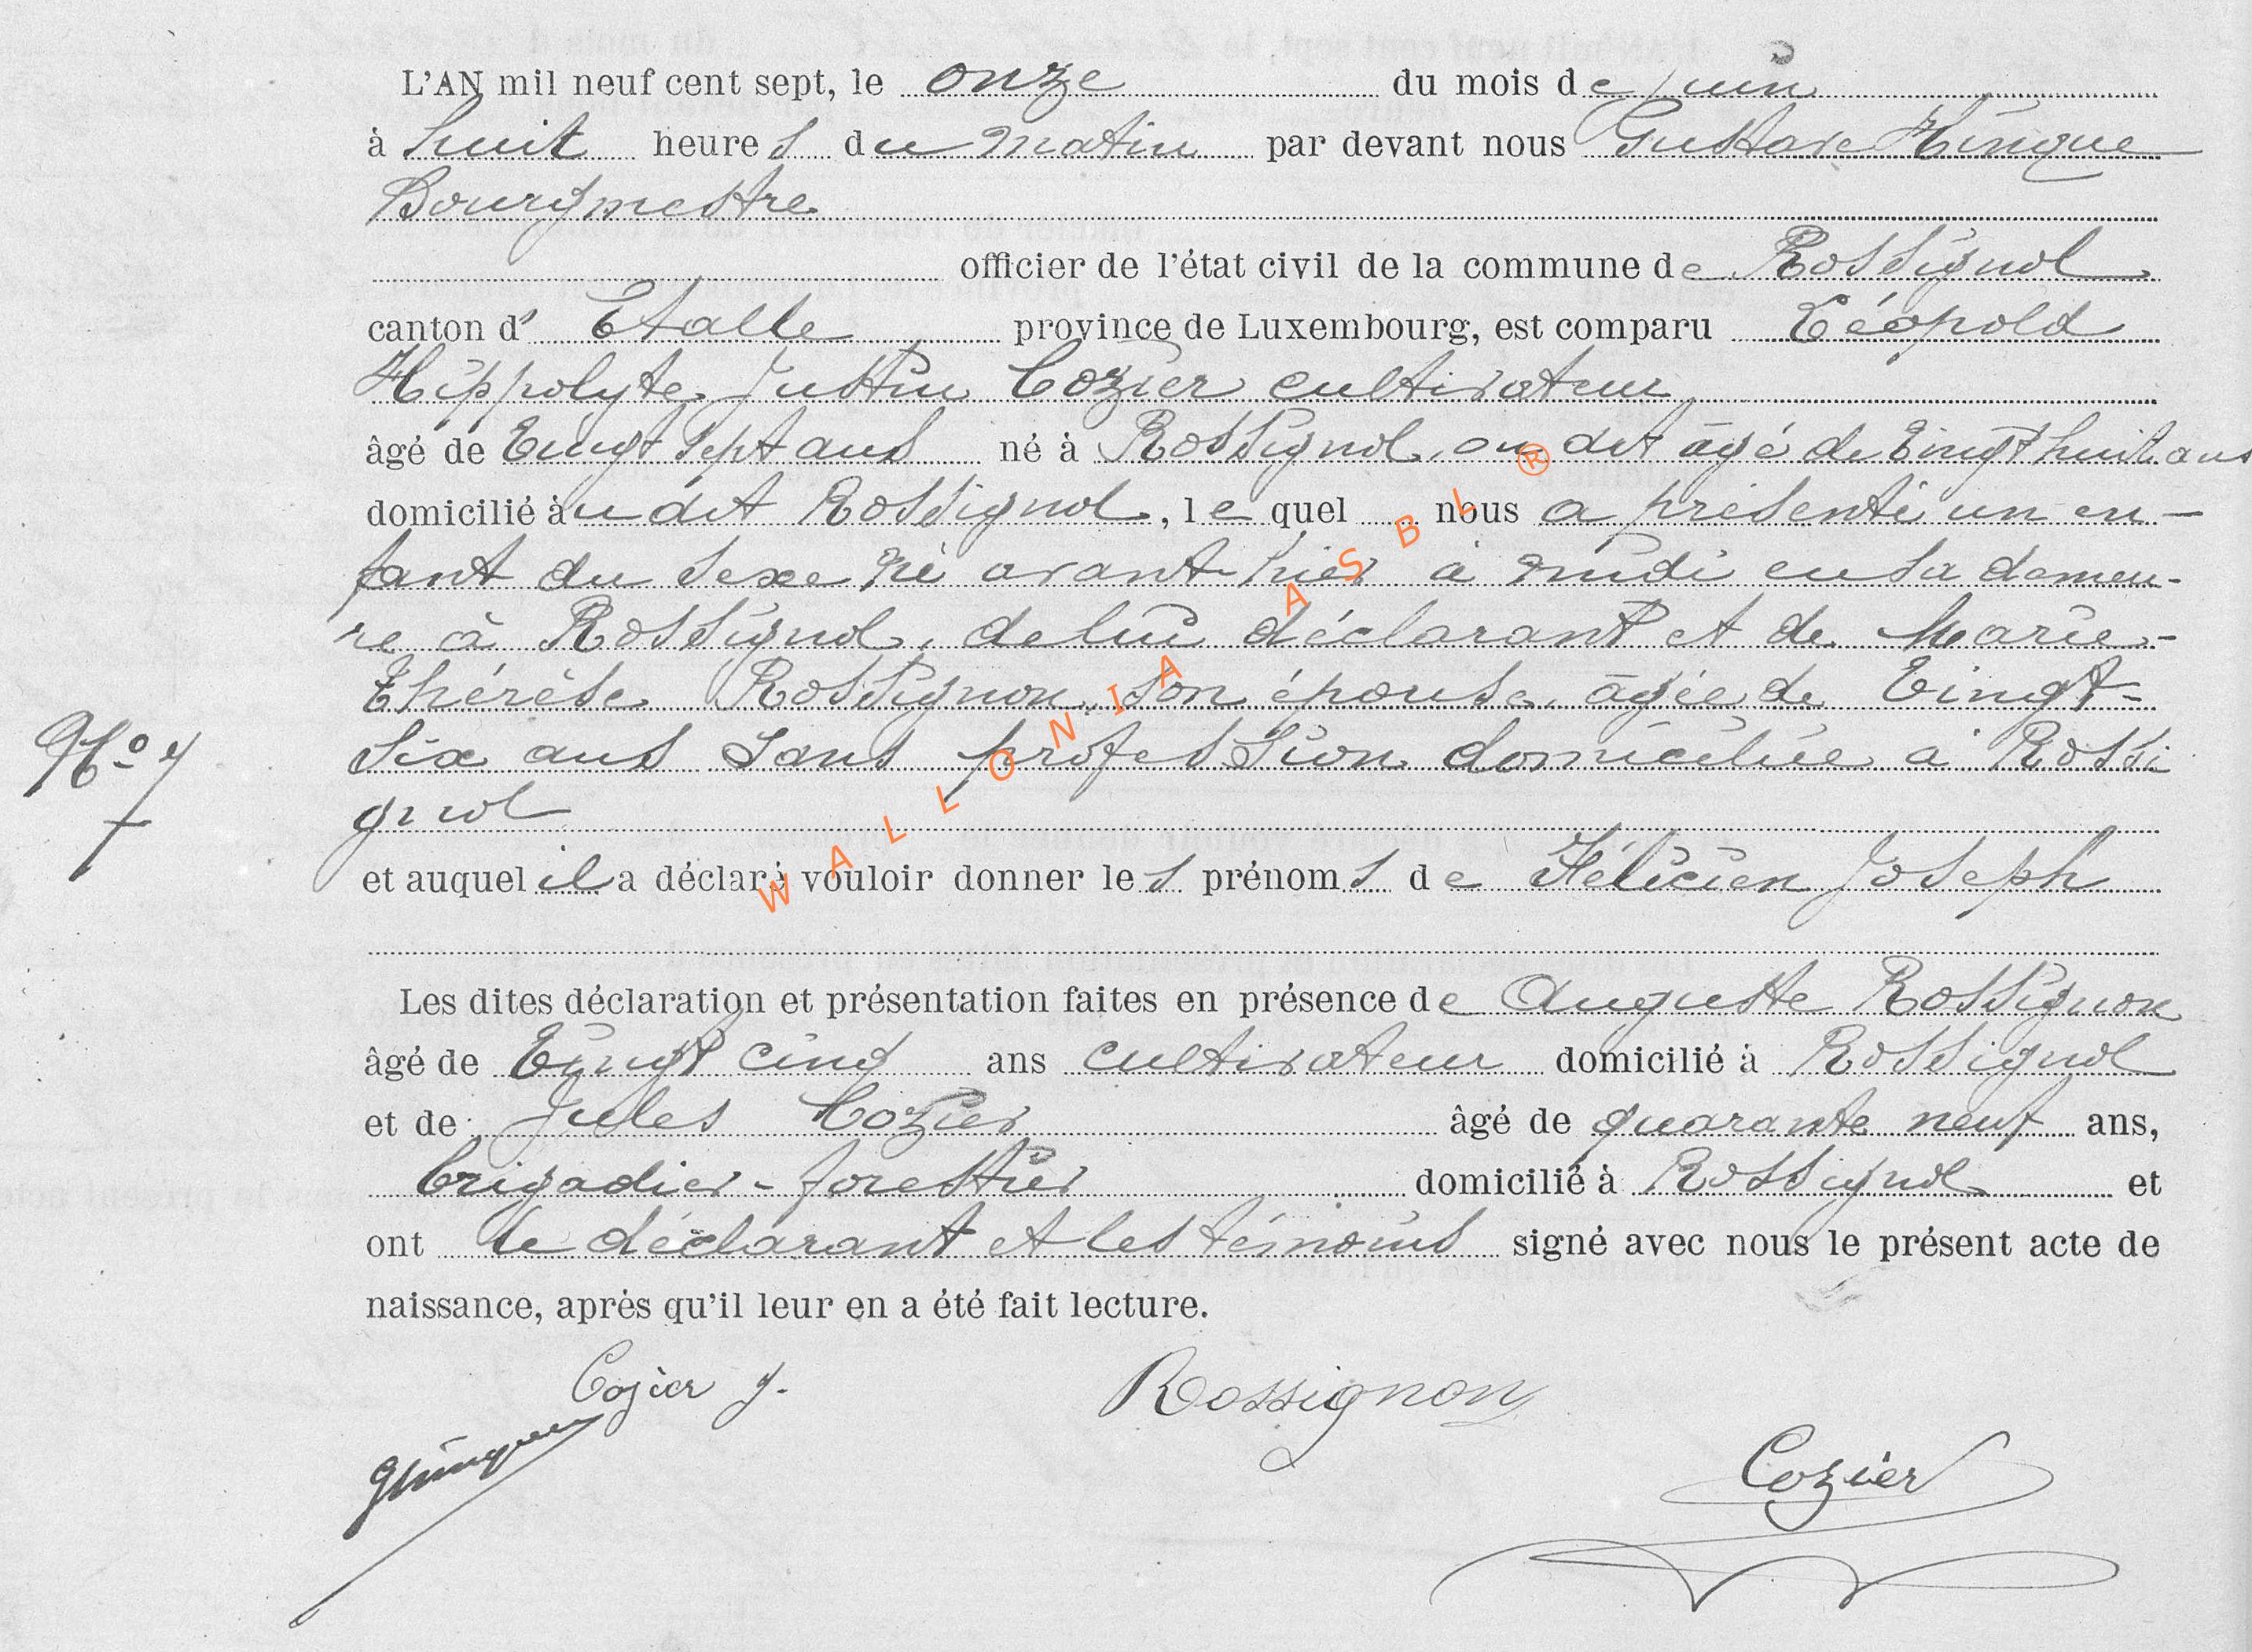 L'AN mil neuf cent sept, le onze du mois de juin
à huit heures du matin par devant nous Gustave Hinque
Bourgmestre
officier de l'état civil de la commune de Rossignol
canton d' Etalle province de Luxembourg, est comparu Léopold
Hippolyte Justin Cozier cultivateur
âgé de Vingt sept ans né à Rossignol, on dit âgé de Vingt huit ans
domicilié àu dit Rossignol, le quel nous a présenté un en-
fant du sexe né avant-hier à midi en sa demeu-
re à Rossignol, de lui déclarant et de Marie-
Thérèse Rossignon, son épouse, âgée de Vingt-
six ans sans profession domiciliée à Rossi
N° 7
gnol
et auquel il a déclaré vouloir donner les prénoms de Félicien Joseph
Les dites déclaration et présentation faites en présence de Auguste Rossignon
âgé de Vingt cinq ans cultivateur domicilié à Rossignol
et de Jules Cozier âgé de quarante neuf ans,
brigadier-forestier domicilié à Rossignol et
ont le déclarant et les témoins signé avec nous le présent acte de
naissance, après qu'il leur en a été fait lecture.
Cozier J. Rossignon
GHinque
Cozier
WALLONIA ASBL ®